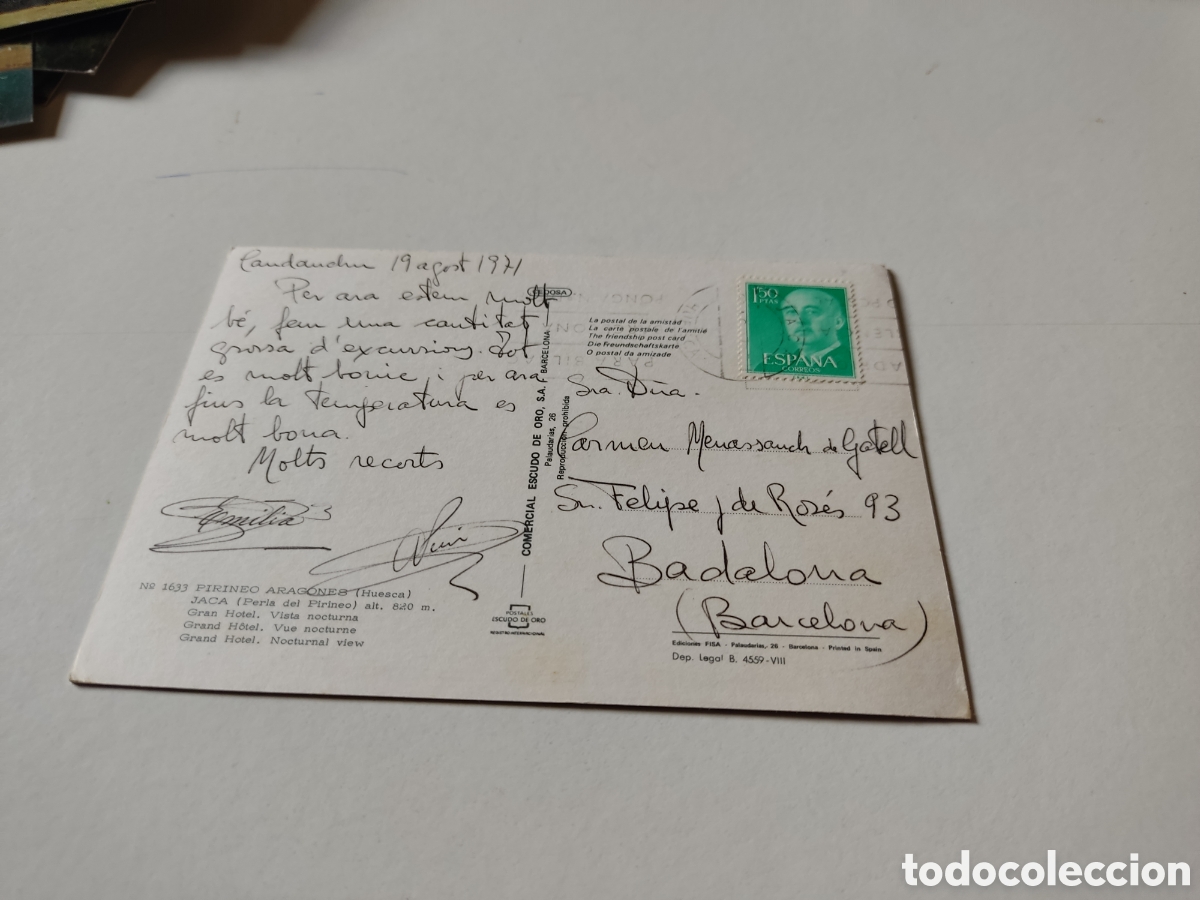 Candanchu 19 agost 1971
Per ara estem molt
bé, fem una cantitat
grossa d'excursions. Tot
es molt bonic i per ara
fins la temperatura es
molt bona.
Molts recorts
Emilia
Nº 1633 PIRINEO ARAGONES (Huesca)
JACA (Perla del Pirineo) alt. 820 m.
Gran Hotel. Vista nocturna
Grand Hôtel. Vue nocturne
Grand Hotel. Nocturnal view
COMERCIAL ESCUDO DE ORO, S.A. BARCELONA
Palaudarias, 26
Reproducción prohibida
POSTALES
ESCUDO DE ORO
REGISTRO INTERNACIONAL
La postal de la amistad
La carte postale de l'amitié
The friendship post card
Die Freundschaftskarte
O postal da amizade
1'50
PTAS
ESPAÑA
CORREOS
Sra. Dña.
Carmen Menassanch de Gatell
Sn. Felipe y de Rosés 93
Badalona
(Barcelona)
Ediciones FISA - Palaudarias, 26 - Barcelona - Printed in Spain
Dep. Legal B. 4559-VIII
todocoleccion